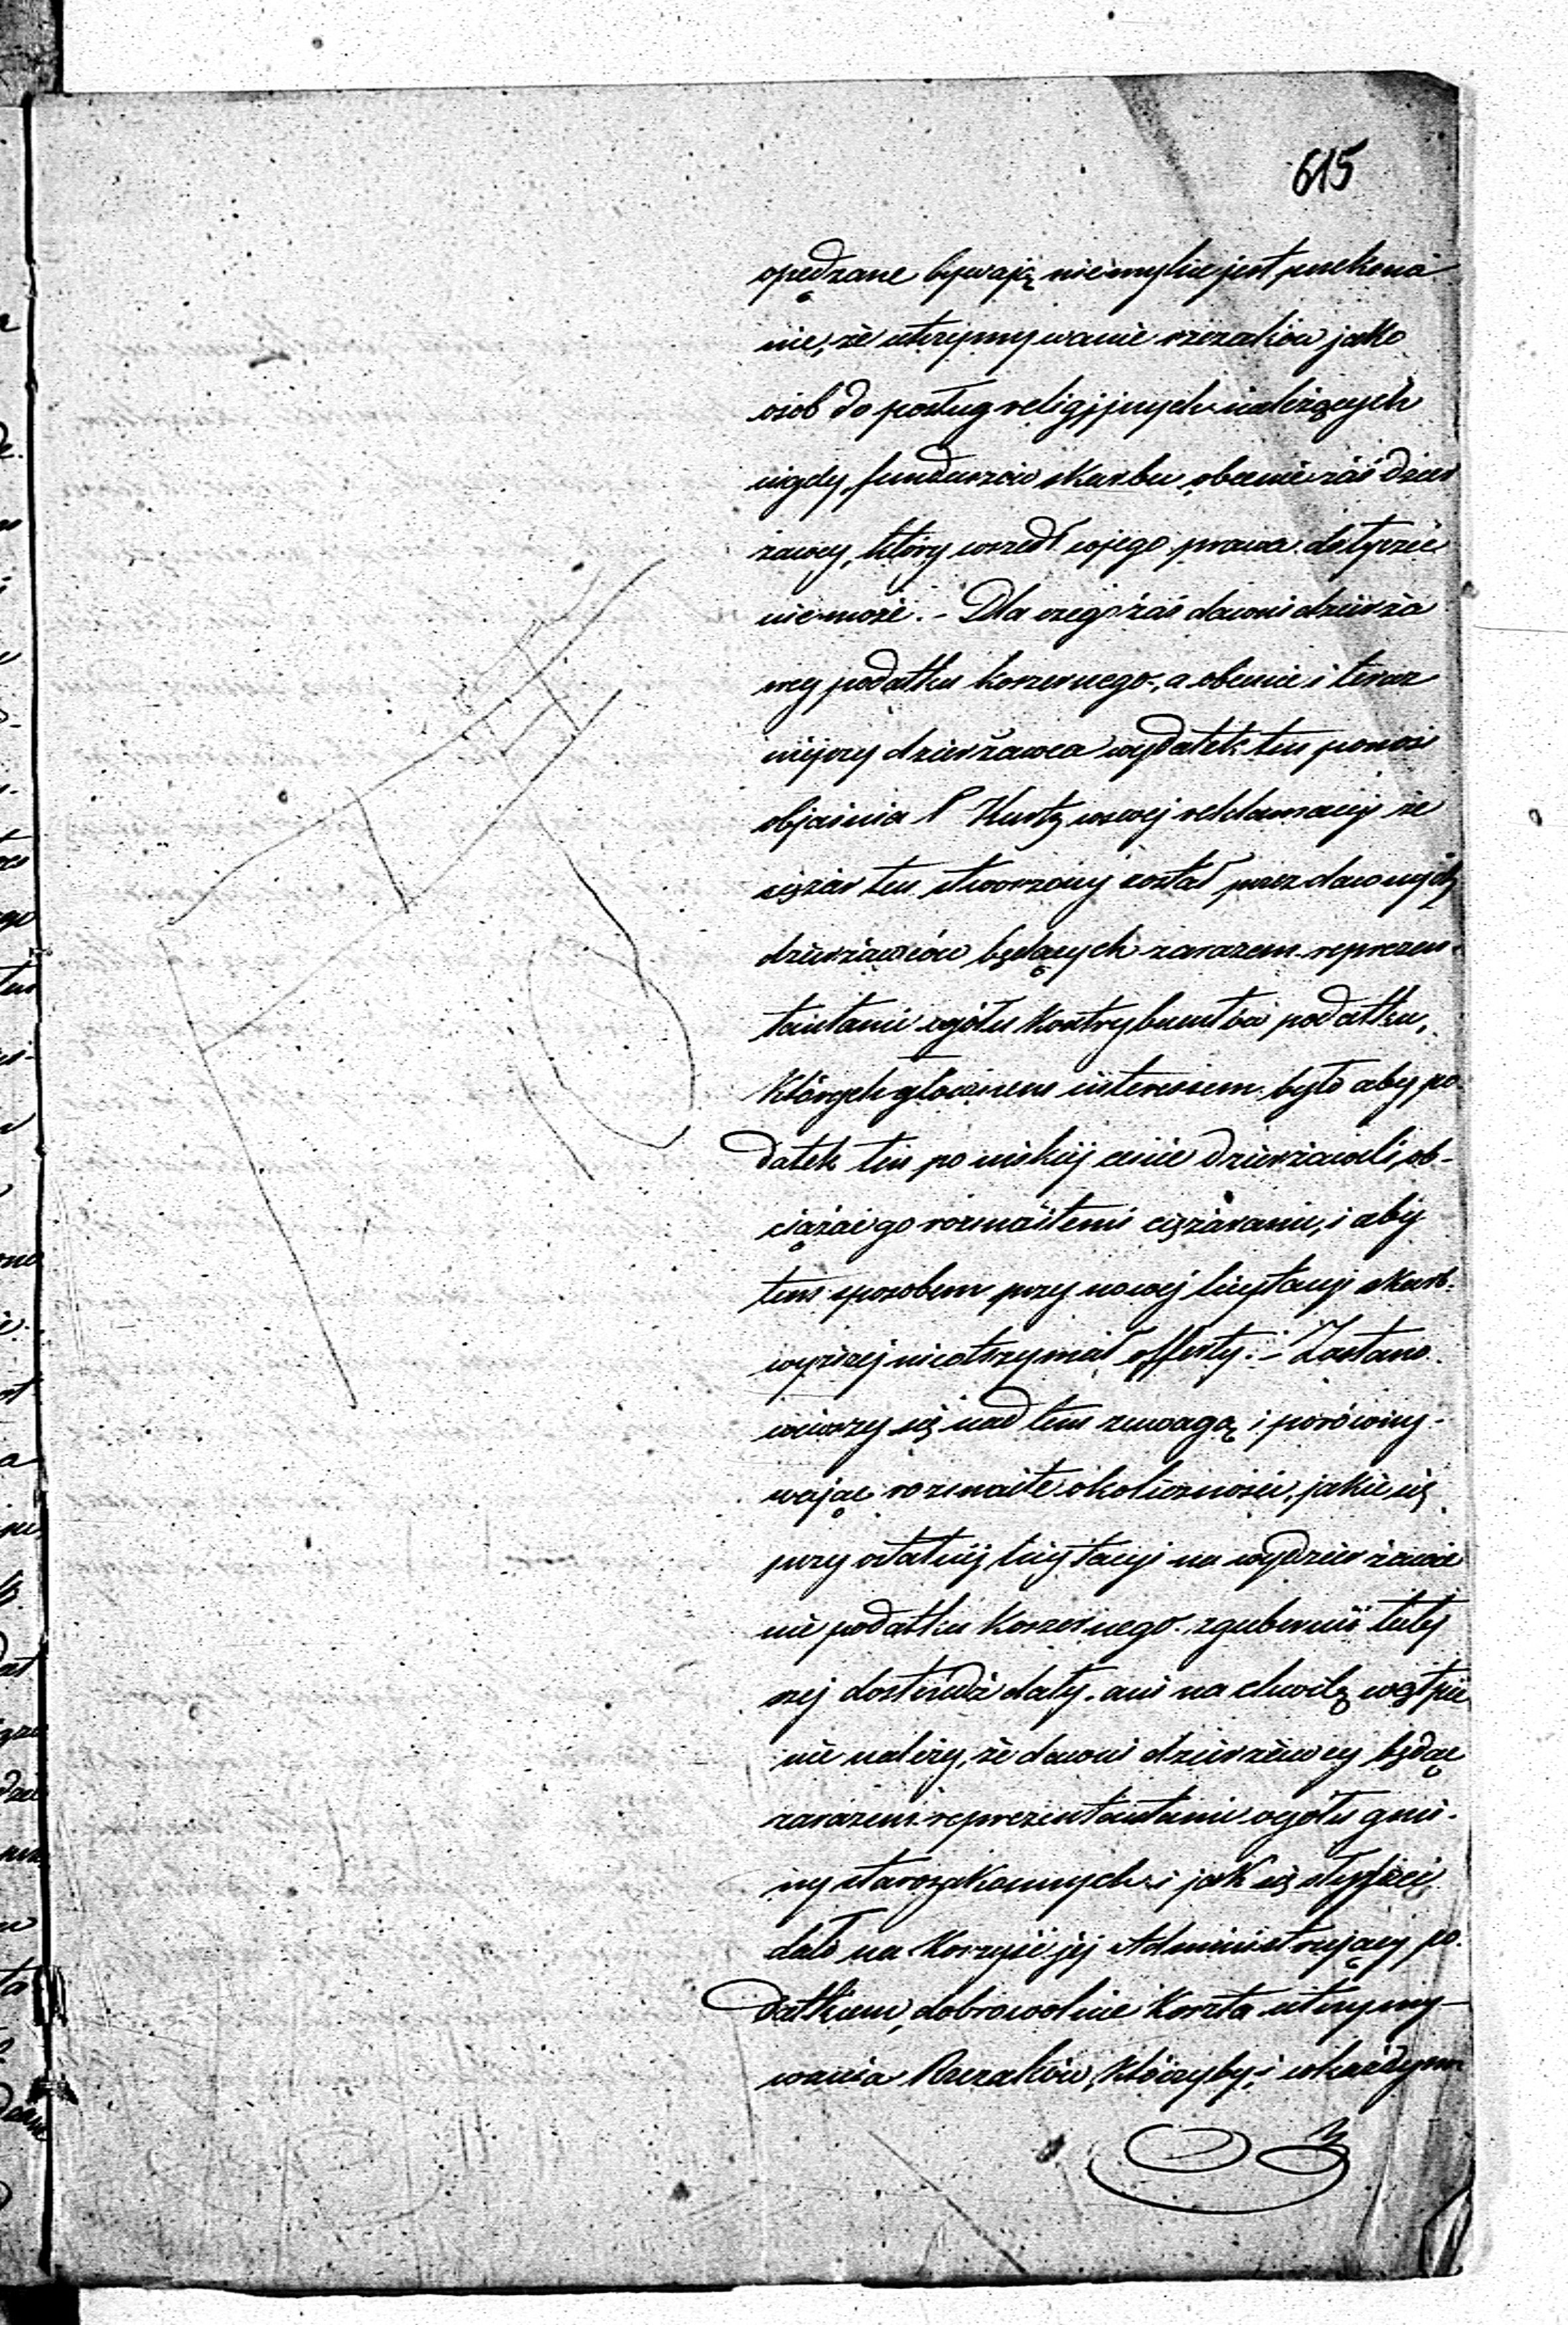 615
opędzane bywają niemylne jest przekona
nie, że utrzymywanie rzezaków jako
osób do posług religijnych należących
nigdy funduszów skarbu, obecnie zaś dzier
żawcy, który wszedł w jego prawa dotyczeć
nie może. – Dla czego zaś dawni dzierża
wcy podatku koszernego, a obecnie i teraz
niejszy dzierżawca wydatek ten ponosi
objaśnia P Kurtz w swej reklamacyi że
ciężar ten utworzony został przez dawnych
dzierżawców będących zarazem reprezen-
tantami ogółu kontrybuentów podatku,
których głównem interessem było aby po
datek ten po niskiej cenie dzierżawili, ob-
ciążać go rozmaitemi ciężarami, i aby
tem sposobem przy nowej licytacyi skarb
wyższej nieotrzymał offerty. – Zastano
wiwszy się nad tem z uwagą i porówny-
wając rozmaite okoliczności, jakie się
przy ostatniej licytacyi na wydzierżawie
nie podatku koszernego z gubernii tutej
szej dostrzedz dały, ani na chwilę wątpić
nie należy, że dawni dzierżawcy będąc
zarazem reprezentantami ogółu gmi-
ny starozakonnych i jak się słyszeć
dało na korzyść jej Administrujący po
datkiem, dobrowolnie koszta utrzymy-
wania Rzezaków, którzyby i w każdym